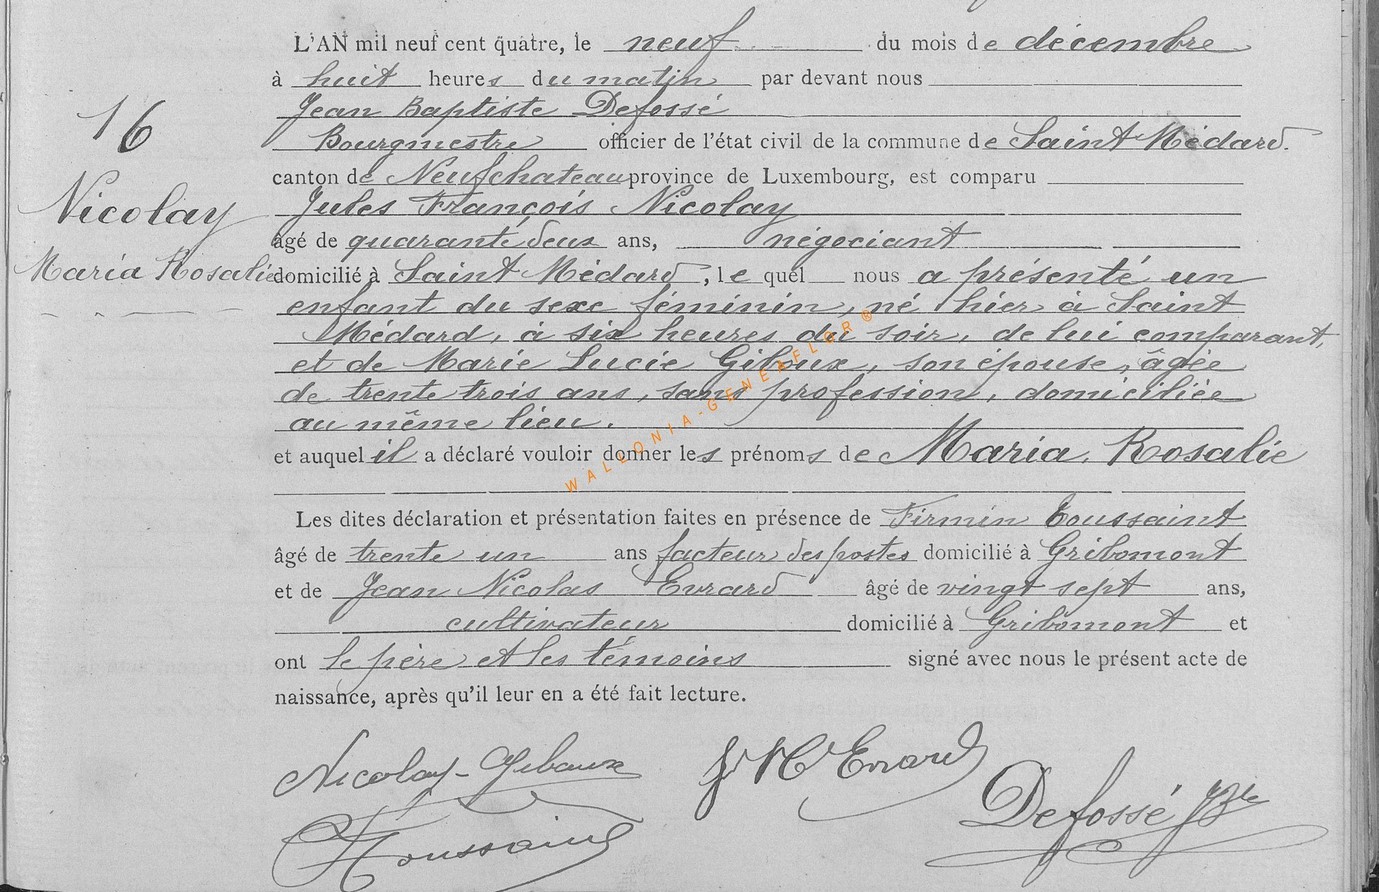 L'AN mil neuf cent quatre, le neuf du mois de décembre
à huit heures du matin par devant nous
Jean Baptiste Defossé
Bourgmestre officier de l'état civil de la commune de Saint Médard.
canton de Neufchateau province de Luxembourg, est comparu
Jules François Nicolay
âgé de quarante deux ans, négociant
domicilié à Saint Médard, le quel nous a présenté un
enfant du sexe féminin, né hier à Saint
Médard, à six heures du soir, de lui comparant,
et de Marie Lucie Giboux, son épouse, âgée
de trente trois ans, sans profession, domiciliée
au même lieu.
et auquel il a déclaré vouloir donner les prénoms de Maria, Rosalie
Les dites déclaration et présentation faites en présence de Firmin Toussaint
âgé de trente un ans facteur des postes domicilié à Gribomont
et de Jean Nicolas Evrard âgé de vingt sept ans,
cultivateur domicilié à Gribomont et
ont le père et les témoins signé avec nous le présent acte de
naissance, après qu'il leur en a été fait lecture.
16
Nicolay
Maria Rosalie
Nicolay-Giboux
J N Evrard
Toussaint
Defossé JBte
WALLONIA-GENEAFLOR®